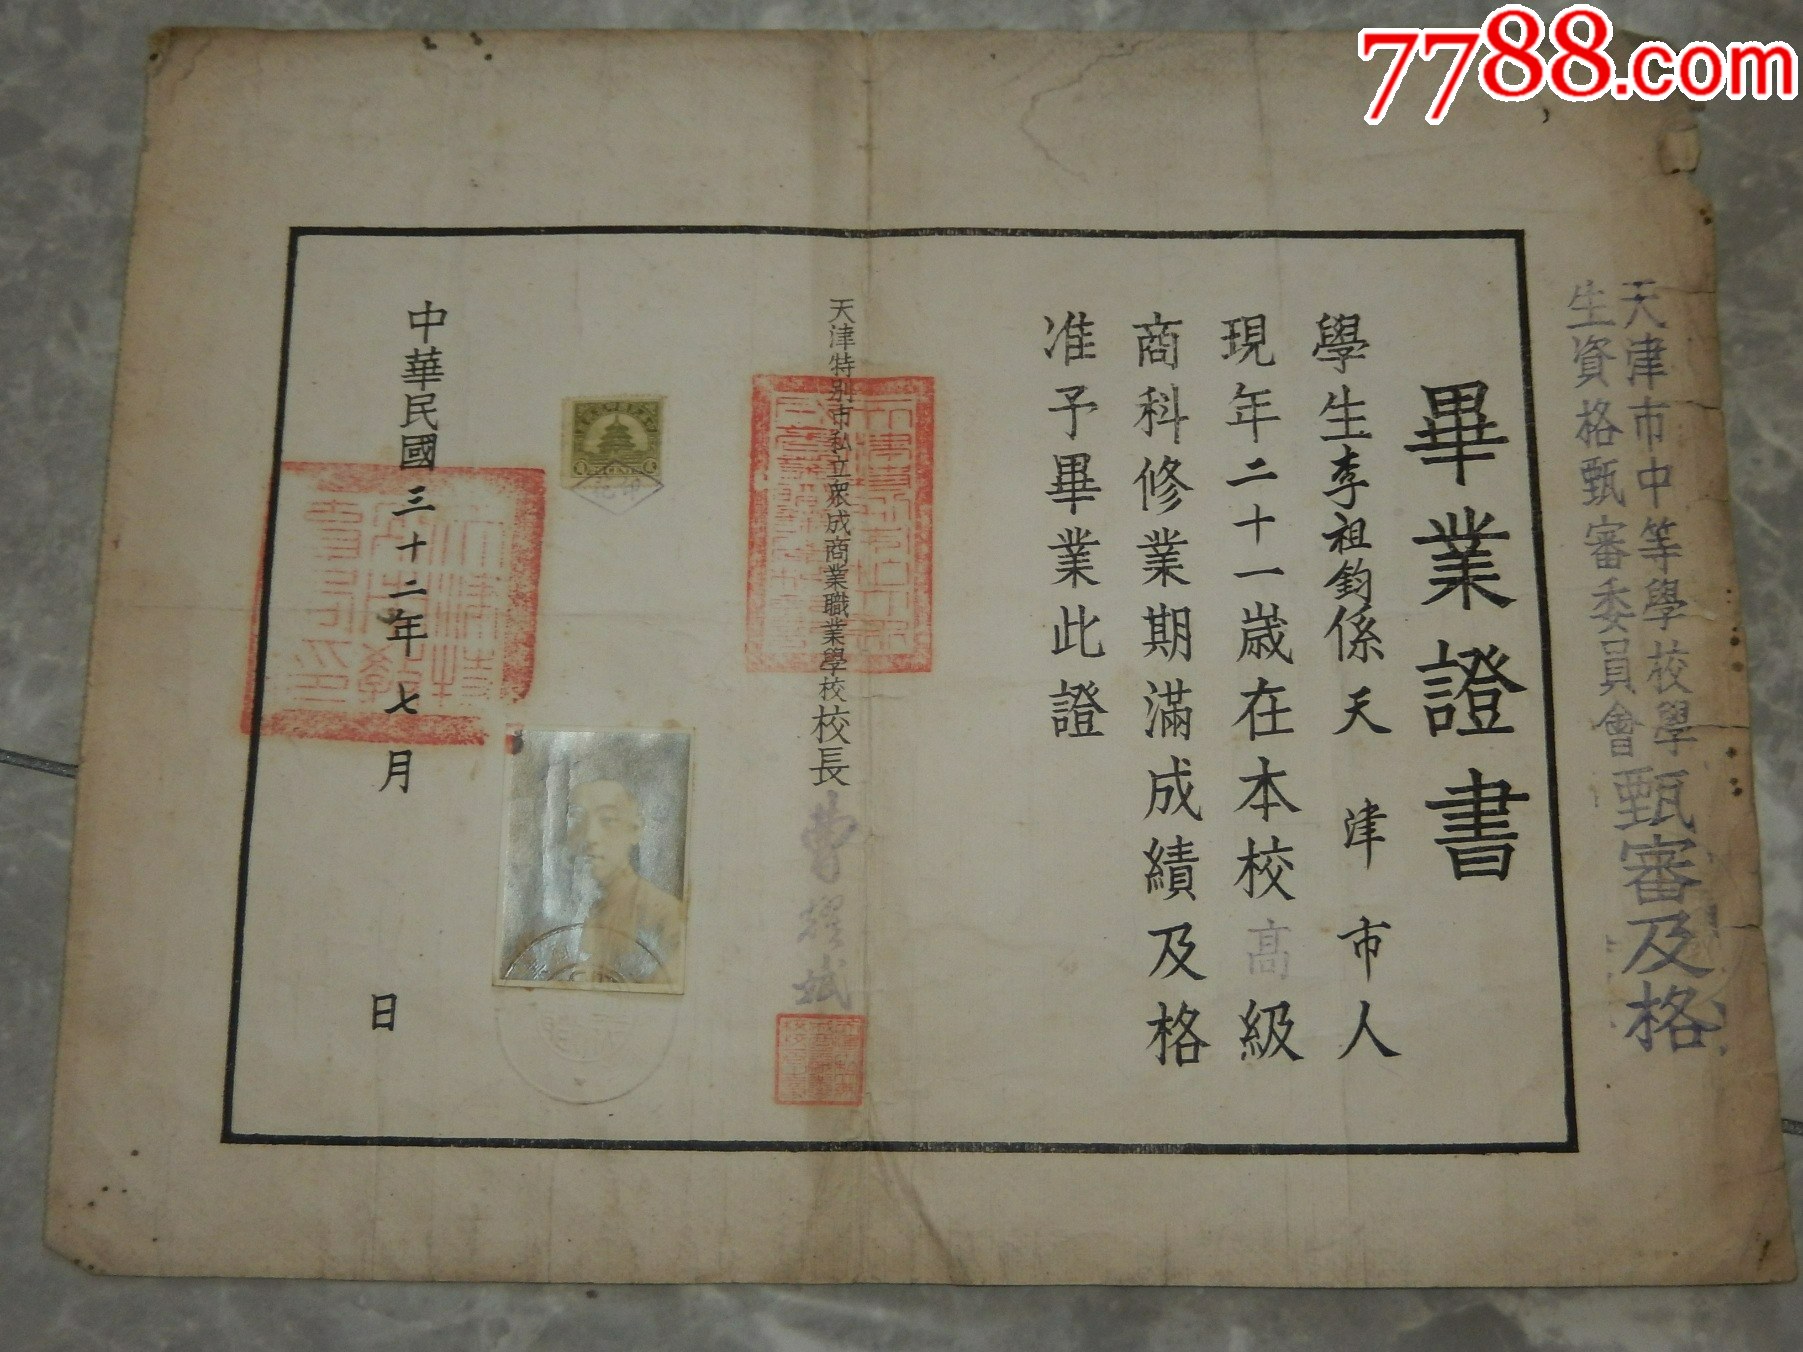 7788.com
天津市中等學校學
生資格甄審委員會
甄審及格
畢業證書
學生李祖鈞係天津市人
現年二十一歲在本校高級
商科修業期滿成績及格
准予畢業此證
天津特別市私立衆成商業職業學校校長
中華民國三十二年七月 日